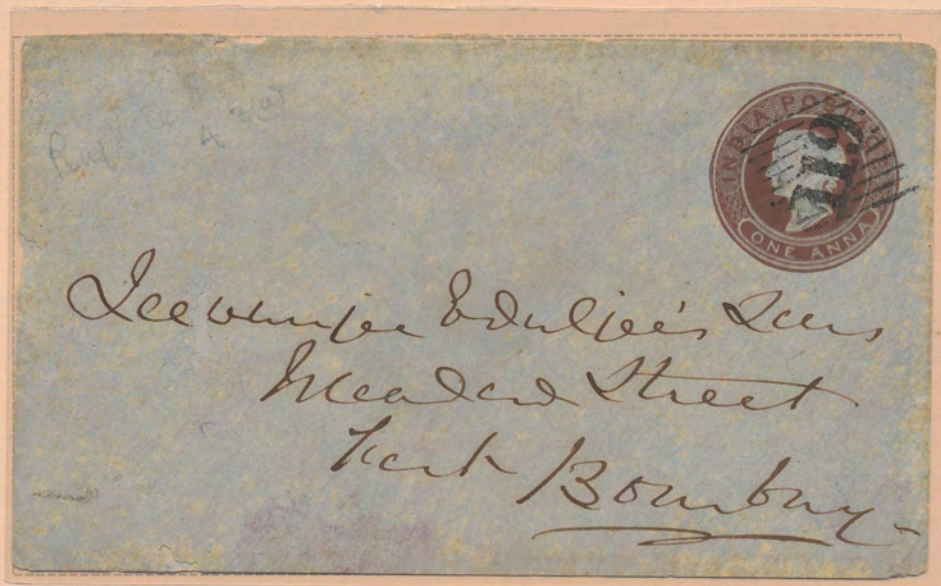 INDIA POSTAGE
ONE ANNA
119
Jeewunjee Eduljee's Sons
Meadow Street
Fort Bombay